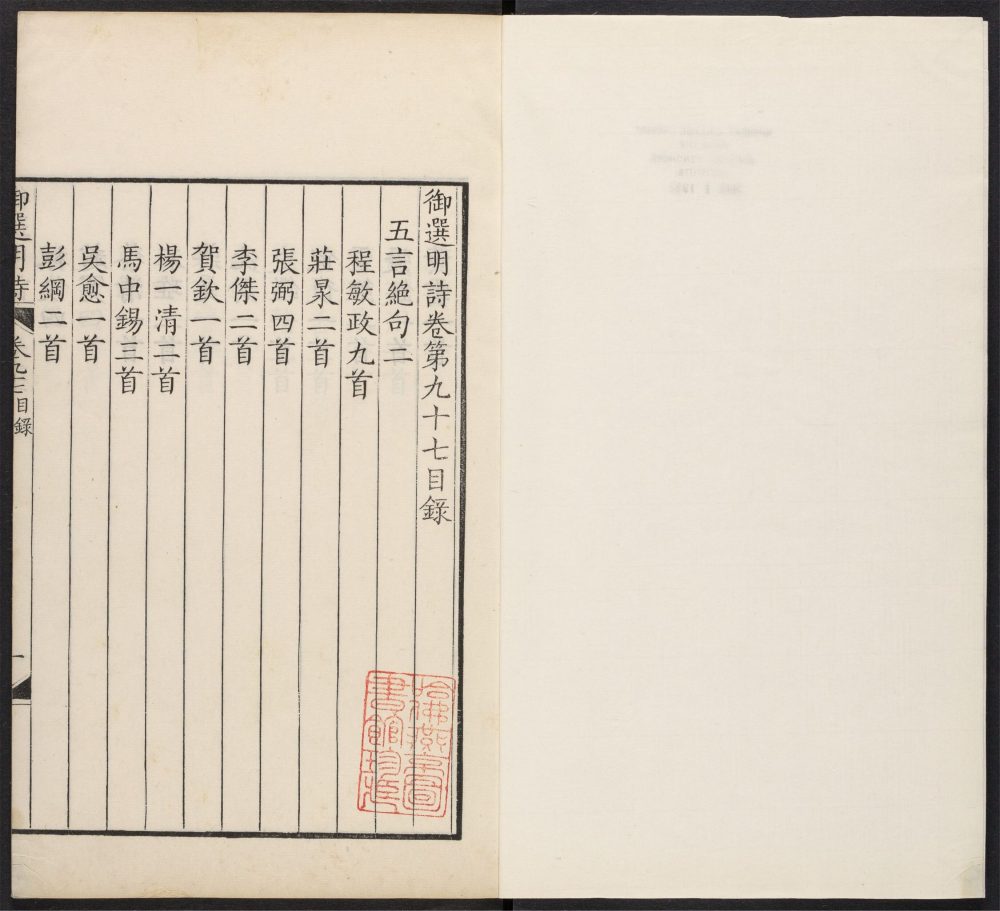 御選明詩卷第九十七目錄
五言絶句二
程敏政九首
莊㫤二首
張弼四首
李傑二首
賀欽一首
楊一清二首
馬中錫三首
吳愈一首
彭綱二首
御選明詩
目錄
一
哈佛燕京圖
書館珍藏